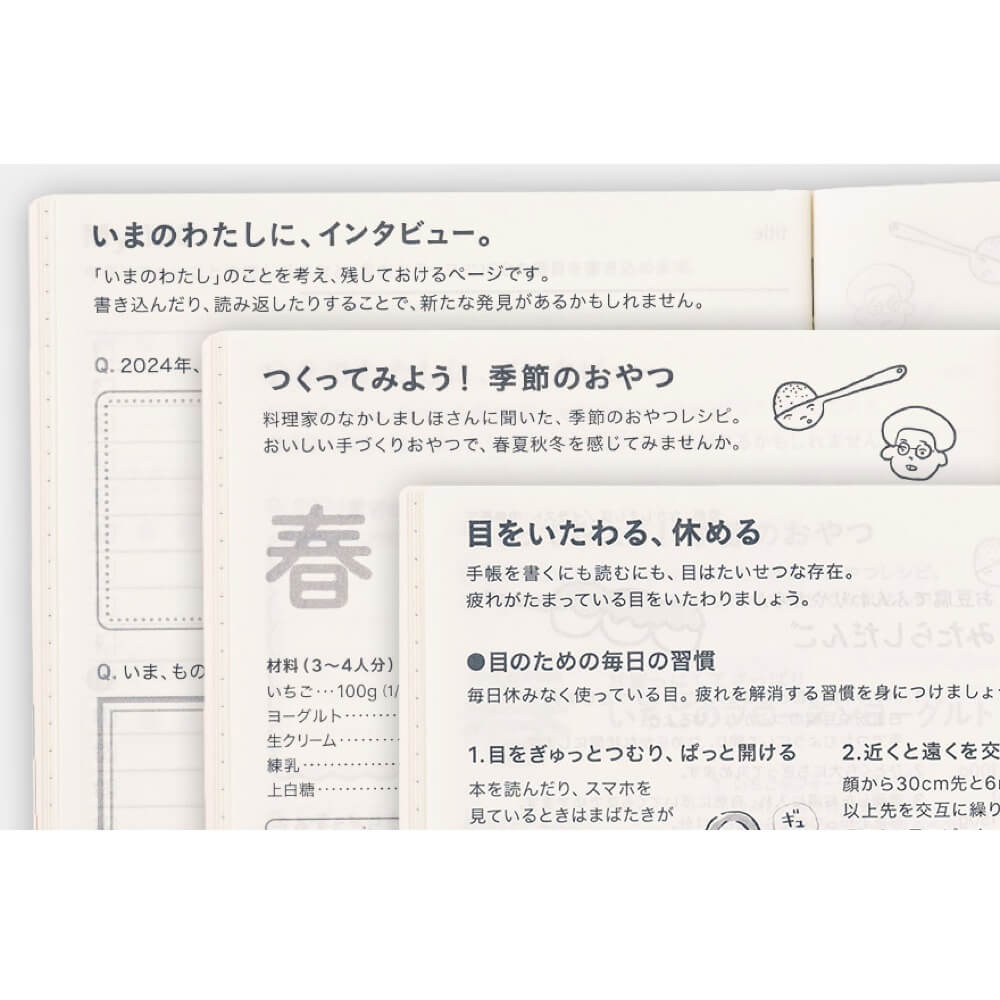 いまのわたしに、インタビュー。
「いまのわたし」のことを考え、残しておけるページです。
書き込んだり、読み返したりすることで、新たな発見があるかもしれません。
Q. 2024年、
Q. いま、もの
つくってみよう！ 季節のおやつ
料理家のなかしましほさんに聞いた、季節のおやつレシピ。
おいしい手づくりおやつで、春夏秋冬を感じてみませんか。
春
材料（3〜4人分）
いちご…100g（1/
ヨーグルト………
生クリーム………
練乳……………
上白糖…………
目をいたわる、休める
手帳を書くにも読むにも、目はたいせつな存在。
疲れがたまっている目をいたわりましょう。
●目のための毎日の習慣
毎日休みなく使っている目。疲れを解消する習慣を身につけましょ
1.目をぎゅっとつむり、ぱっと開ける
本を読んだり、スマホを
見ているときはまばたきが
ギュ
2.近くと遠くを交
顔から30cm先と6
以上先を交互に繰り